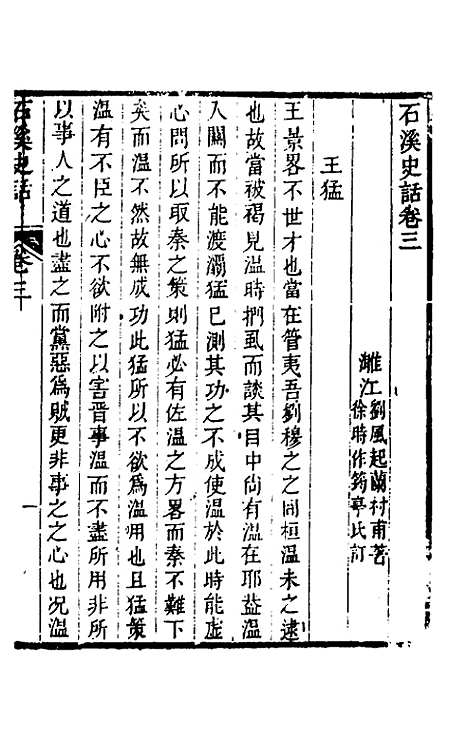 石溪史話卷三
雕江劉風起蘭村甫著
徐時作筠亭氏訂
王猛
王景畧不世才也當在管夷吾劉穆之之間桓溫未之逮
也故當被褐見溫時捫虱而談其目中尙有溫在耶葢溫
入關而不能渡灞猛已測其功之不成使溫於此時能虛
心問所以取秦之策則猛必有佐溫之方畧而秦不難下
矣而溫不然故無成功此猛所以不欲爲溫用也且猛策
溫有不臣之心不欲附之以害晉事溫而不盡所用非所
以事人之道也盡之而黨惡爲賊更非事之之心也况溫
石溪史話
卷三
一